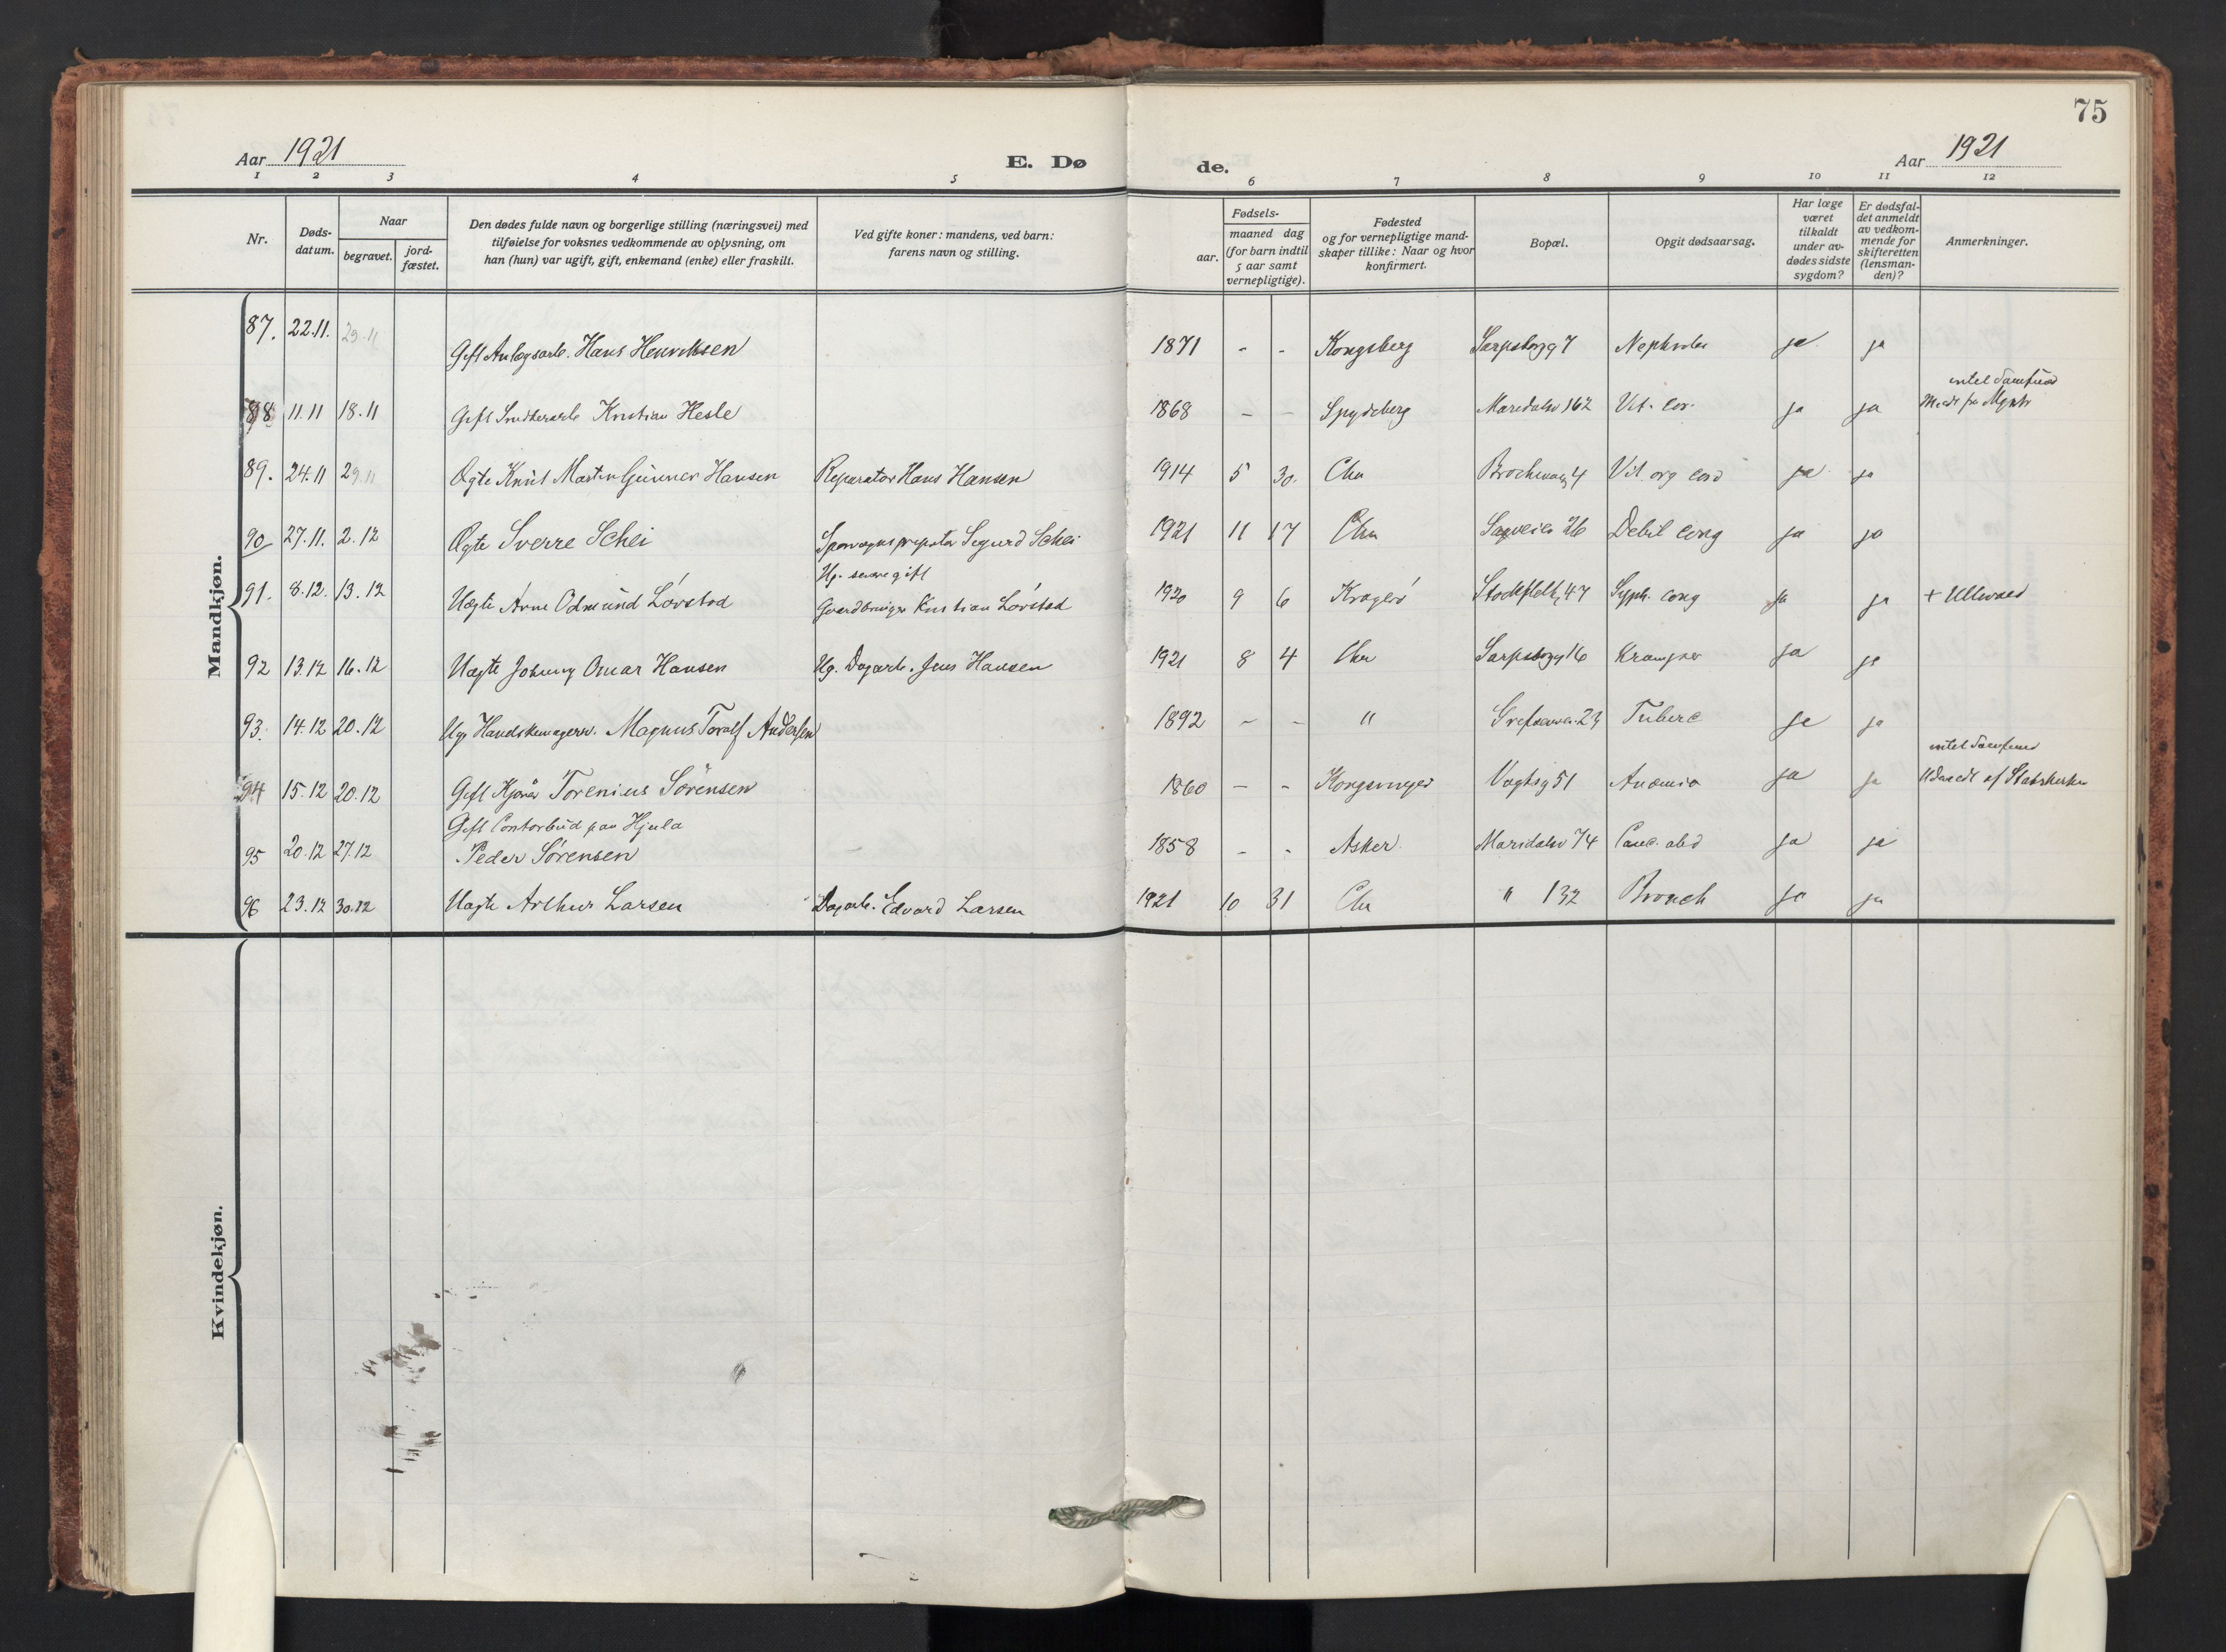 75
Aar 1921
E. Dø
de.
Aar 1921
1 2 3 4 5 6 7 8 9 10 11 12
Nr.
Døds-
datum.
Naar
begravet.
jord-
fæstet.
Den dødes fulde navn og borgerlige stilling (næringsvei) med
tilføielse for voksnes vedkommende av oplysning, om
han (hun) var ugift, gift, enkemand (enke) eller fraskilt.
Ved gifte koner: mandens, ved barn:
farens navn og stilling.
Fødsels-
aar.
maaned dag
(for barn indtil
5 aar samt
vernepligtige).
Fødested
og for vernepligtige mand-
skaper tillike: Naar og hvor
konfirmert.
Bopæl.
Opgit dødsaarsag.
Har læge
været
tilkaldt
under av-
dødes sidste
sygdom?
Er dødsfal-
det anmeldt
av vedkom-
mende for
skifteretten
(lensman-
den)?
Anmerkninger.
Mandkjøn.
87. 22.11. 29.11 Gift Anlegsarb. Hans Henriksen 1871 - - Kongsberg Sarpsborgg 7 ja ja
intet Samfund
88 11.11 18.11 Gift Snekkerarb Kristian Hesle 1868 - - Spydeberg Maridalsv 162 Vit. cor. ja ja
89. 24.11 29.11 Ægte Knut Martin Gunnar Hansen Reparatør Hans Hansen 1914 5 30. Chra 4 Vit. org cord ja ja
90 27.11. 2.12 Ægte Sverre Schei Sigurd Schei 1921 11 17 Chra Sagveien 26 Debil cong ja ja
Ug. senere gift
91. 8.12. 13.12 Uægte Arne Odmund Lövstad Kristian Lövstad 1920 9 6 Kragerö 47 Syph. cong ja ja + Ullevaal
92 13.12 16.12 Uægte Johnny Omar Hansen Ug. Dagarb. Jens Hansen 1921 8 4 Chra Sarpsborgg 16 Kramper ja ja
93. 14.12 20.12 Ug. Magnus Toralf Andersen 1892 - - " Grefsenvei. 23 Tuberc ja ja
intet Samfund
94 15.12 20.12 Gift Kjører Torenius Sörensen 1860 - - Kongsvinger Vogtsg 51 Anæmia ja ja Udmeldt af Statskirken
Gift Contorbud paa Hjula
95 20.12 27.12 Peder Sörensen 1858 - - Asker Maridalsv 74 Canc. abd ja ja
96 23.12 30.12 Uægte Arthur Larsen Dagarb. Edvard Larsen 1921 10 31 Chr " 132 Bronch ja ja
Kvindekjøn.